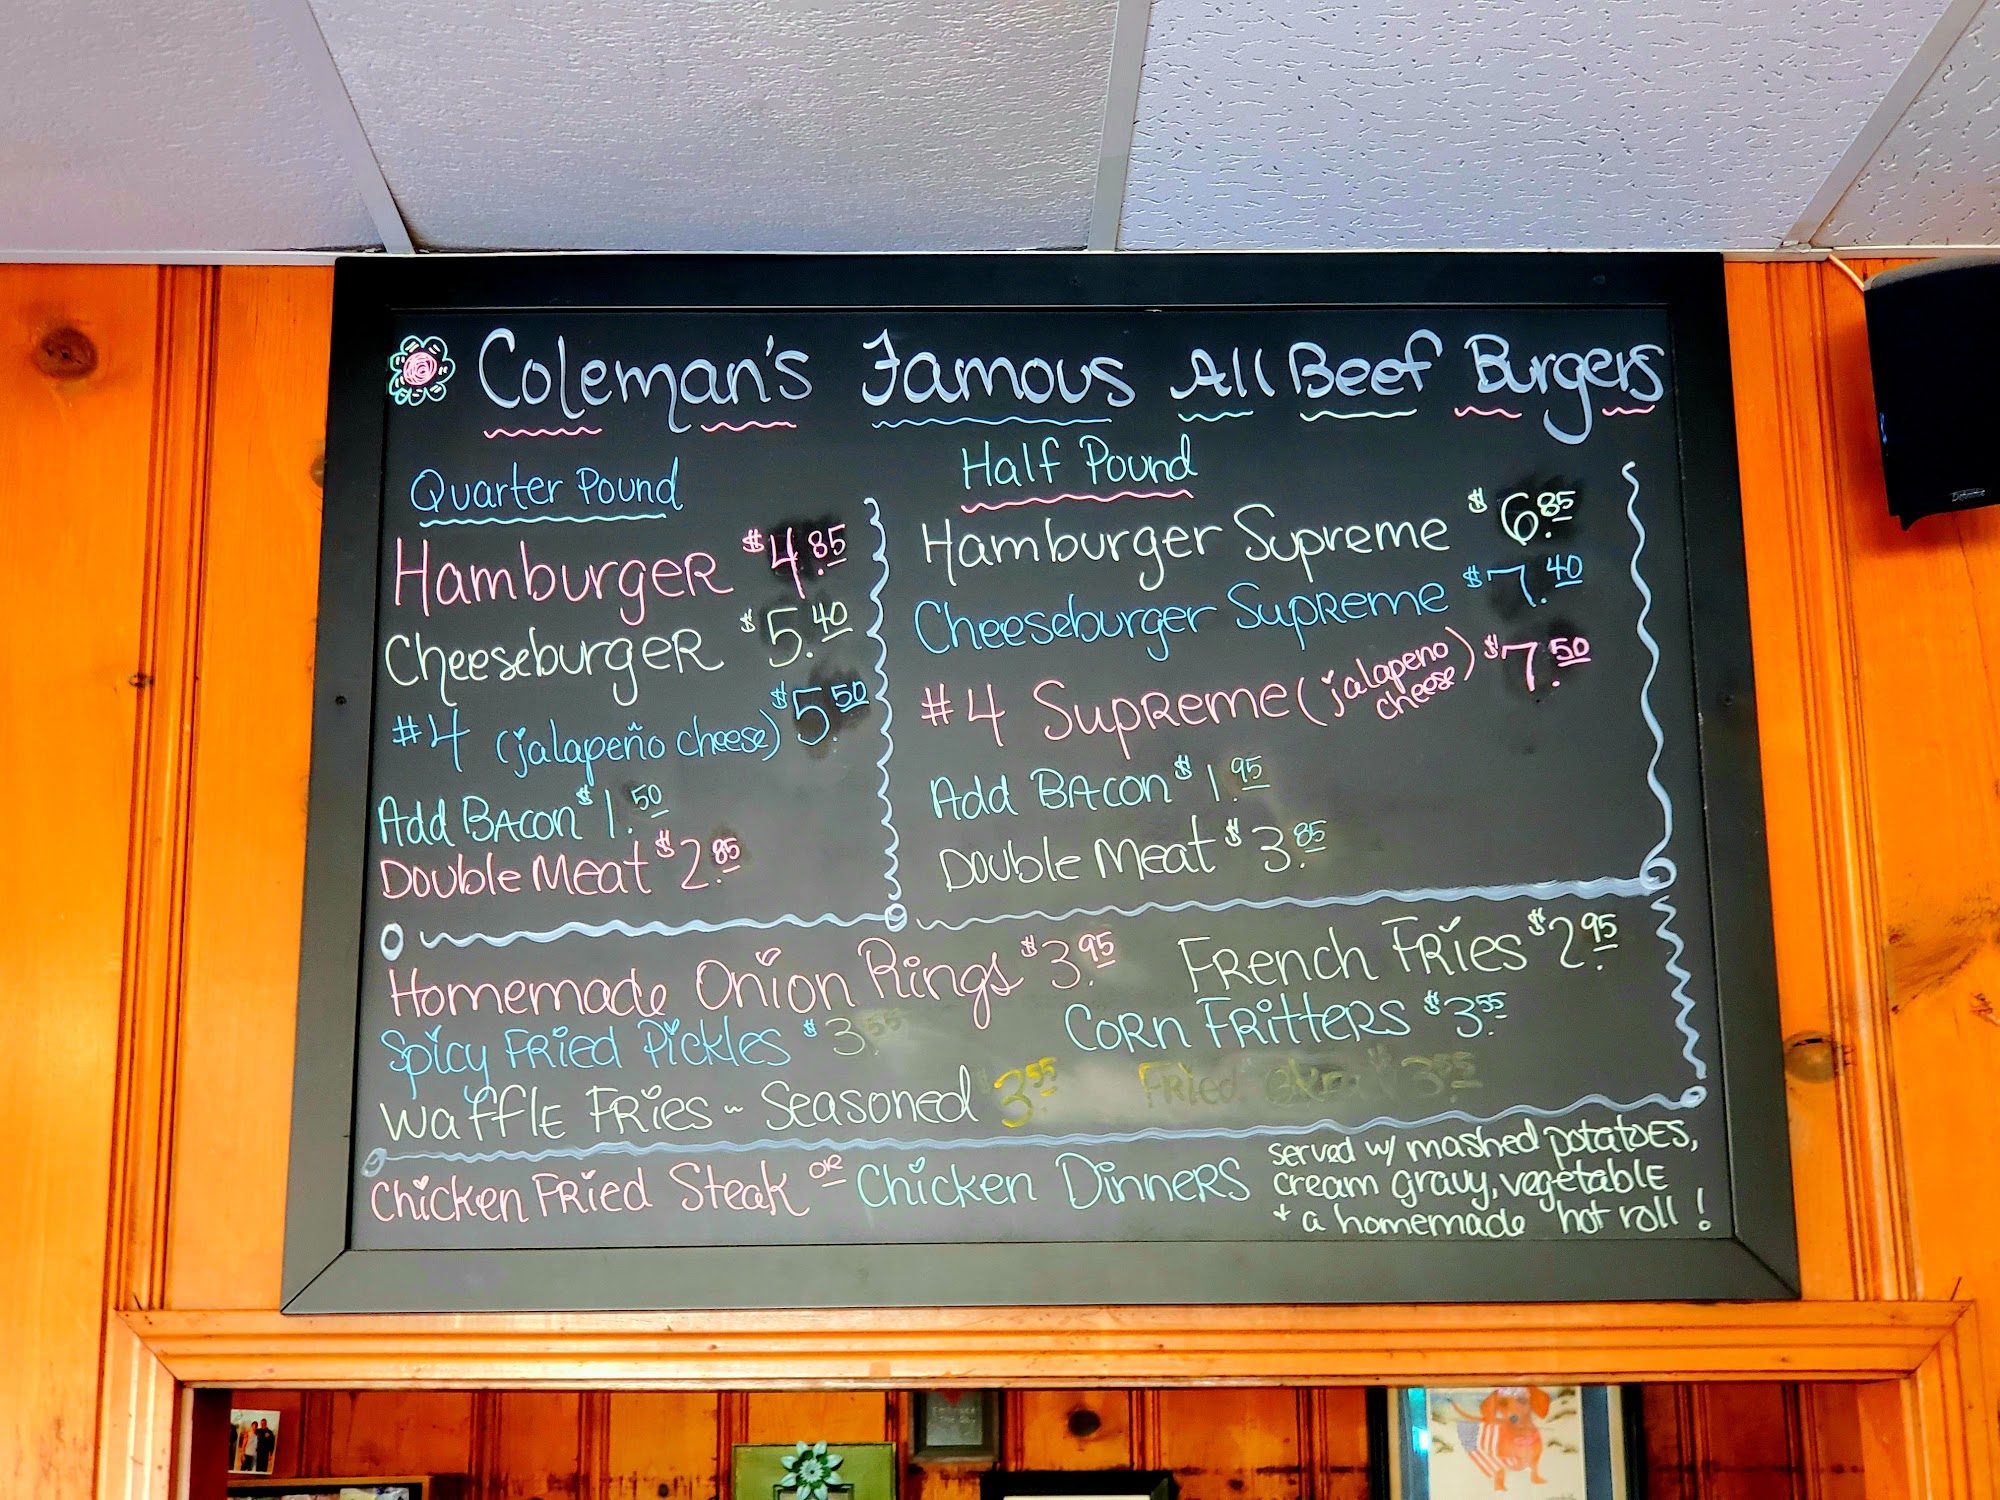 Coleman's Famous All Beef Burgers
Quarter Pound
Hamburger $4.85
Cheeseburger $5.40
#4 (jalapeño cheese) $5.50
Add Bacon $1.50
Double Meat $2.85
Half Pound
Hamburger Supreme $6.85
Cheeseburger Supreme $7.40
#4 Supreme (jalapeno cheese) $7.50
Add Bacon $1.95
Double Meat $3.85
Homemade Onion Rings $3.95
French Fries $2.95
Spicy Fried Pickles $3.55
Corn Fritters $3.55
Waffle Fries ~ Seasoned $3.55
Fried Okra $3.55
Chicken Fried Steak or Chicken Dinners
served w/ mashed potatoes,
cream gravy, vegetable
+ a homemade hot roll!